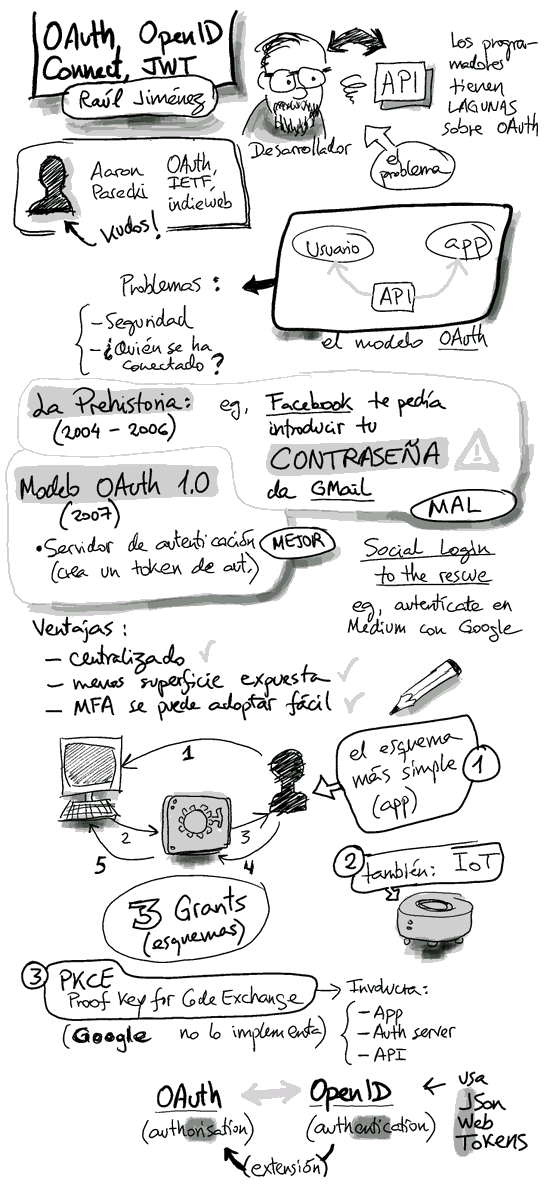 OAuth, OpenID
Connect, JWT
Raúl Jiménez
Desarrollador
API
el
problema
Los progra-
madores
tienen
LAGUNAS
sobre OAuth
Aaron
Parecki
OAuth,
IETF,
indieweb
Kudos!
Usuario
app
API
el modelo OAuth
Problemas:
- Seguridad
- ¿Quién se ha
conectado?
La Prehistoria:
(2004 - 2006)
eg, Facebook te pedía
introducir tu
CONTRASEÑA
da GMail
MAL
Modelo OAuth 1.0
(2007)
• Servidor de autenticación
(crea un token de aut.)
MEJOR
Social Login
to the rescue
eg, autentícate en
Medium con Google
Ventajas:
- centralizado
- menos superficie expuesta
- MFA se puede adoptar fácil
1
2
3
4
5
el esquema
más simple
(app)
1
2
también: IoT
3 Grants
(esquemas)
3
PKCE
Proof Key for Code Exchange
(Google no lo implementa)
Involucra:
- App
- Auth server
- API
OAuth
(authorisation)
OpenID
(authentication)
(extensión)
usa
JSon
Web
Tokens